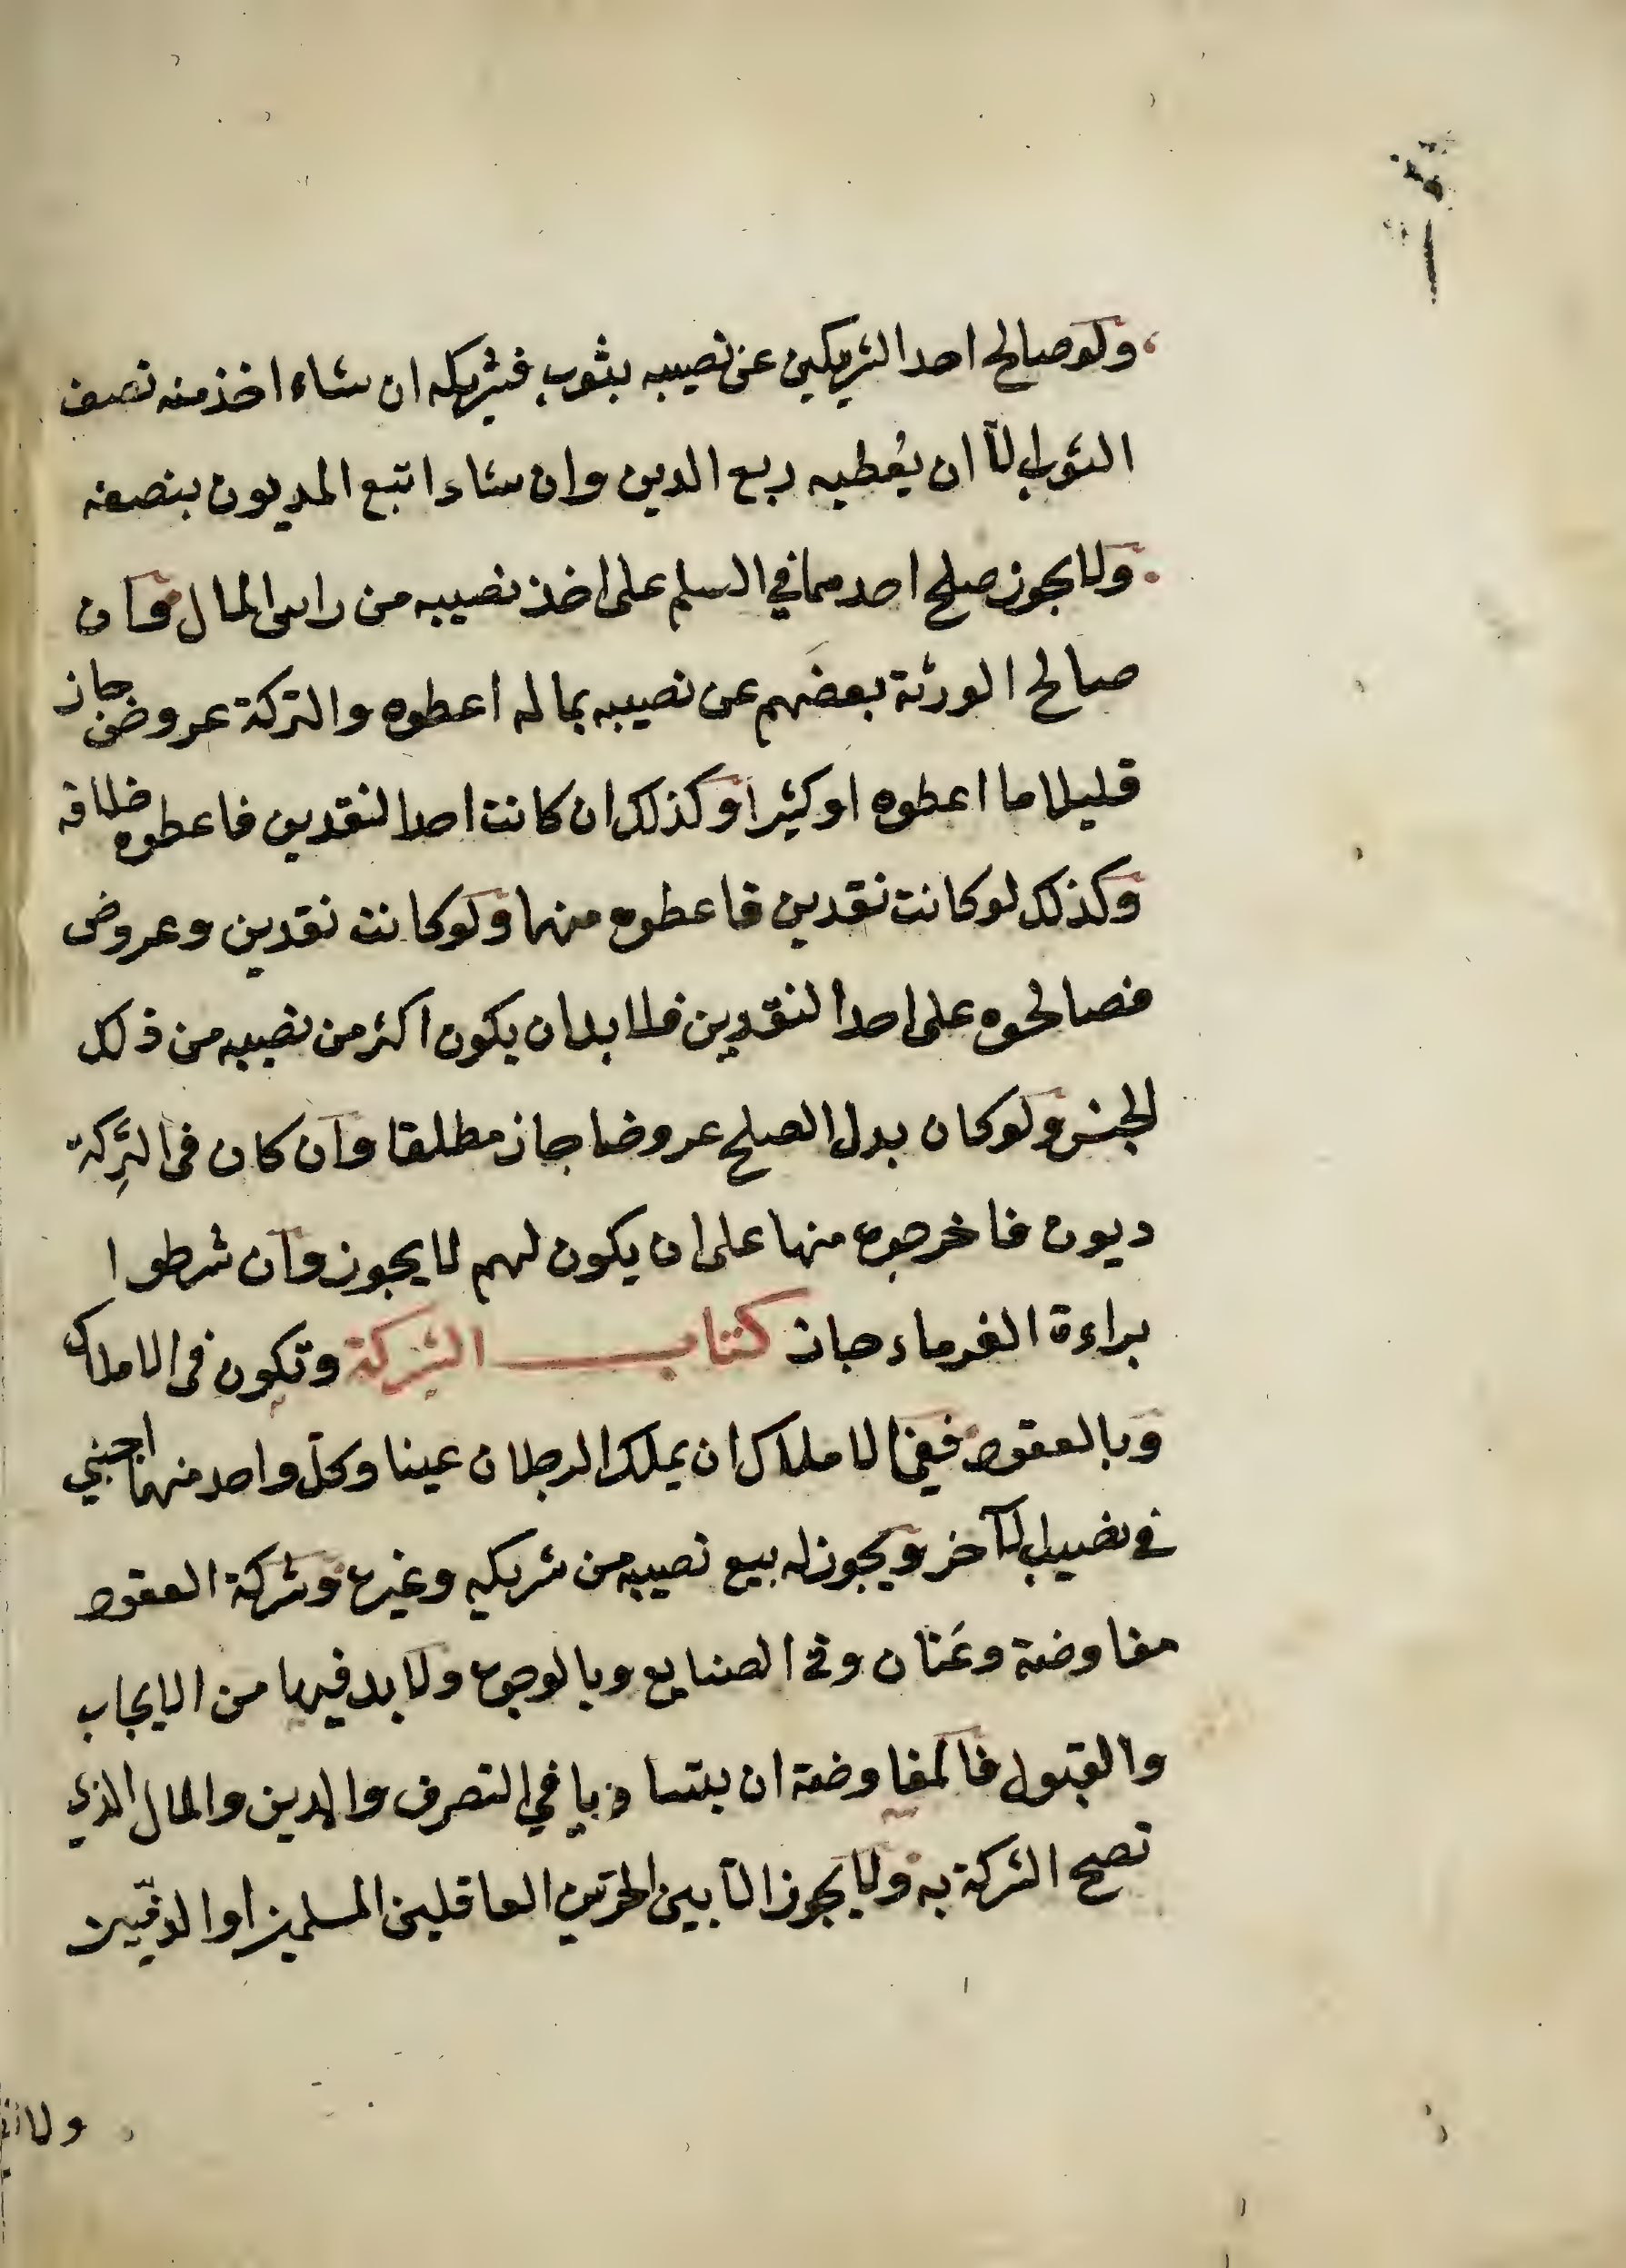 ولو صالح احد الشريكين عن نصيبه بثوب فشريكه ان شاء اخذ منه نصف
الثوب الا ان يعطيه ربع الدين وان شاء اتبع المديون بنصفه
ولا يجوز صلح احدهما في السلم على اخذ نصيبه من راس المال وان
صالح الورثة بعضهم عن نصيبه بمال اعطوه والتركة عروض جاز
قليلا ما اعطوه او كثيرا وكذلك ان كانت احد النقدين فاعطوه خلافه
وكذلك لو كانت نقدين فاعطوه منهما ولو كانت نقدين وعروض
فصالحوه على احد النقدين فلا بد ان يكون اكثر من نصيبه من ذلك
الجنس ولو كان بدل الصلح عروضا جاز مطلقا وان كان في التَّرِكة
ديون فاخرجوه منها على ان يكون لهم لا يجوز وان شرطوا
براءة الغرماء جاز كتاب الشركة وتكون في الاملاك
وبالعقود ففي الاملاك ان يملك الرجلان عينا وكلّ واحد منهما اجنبي
في نصيب الآخر ويجوز له بيع نصيبه من شريكه وغيره وشركة العقود
مفاوضة وعَنان وفي الصنايع وبالوجوه ولا بد فيها من الايجاب
والقبول فالمفاوضة ان يتساويا في التصرف والدين والمال الذي
تصح الشركة به ولا يجوز الا بين الحرّين العاقلين المسلمين او الذمّيين